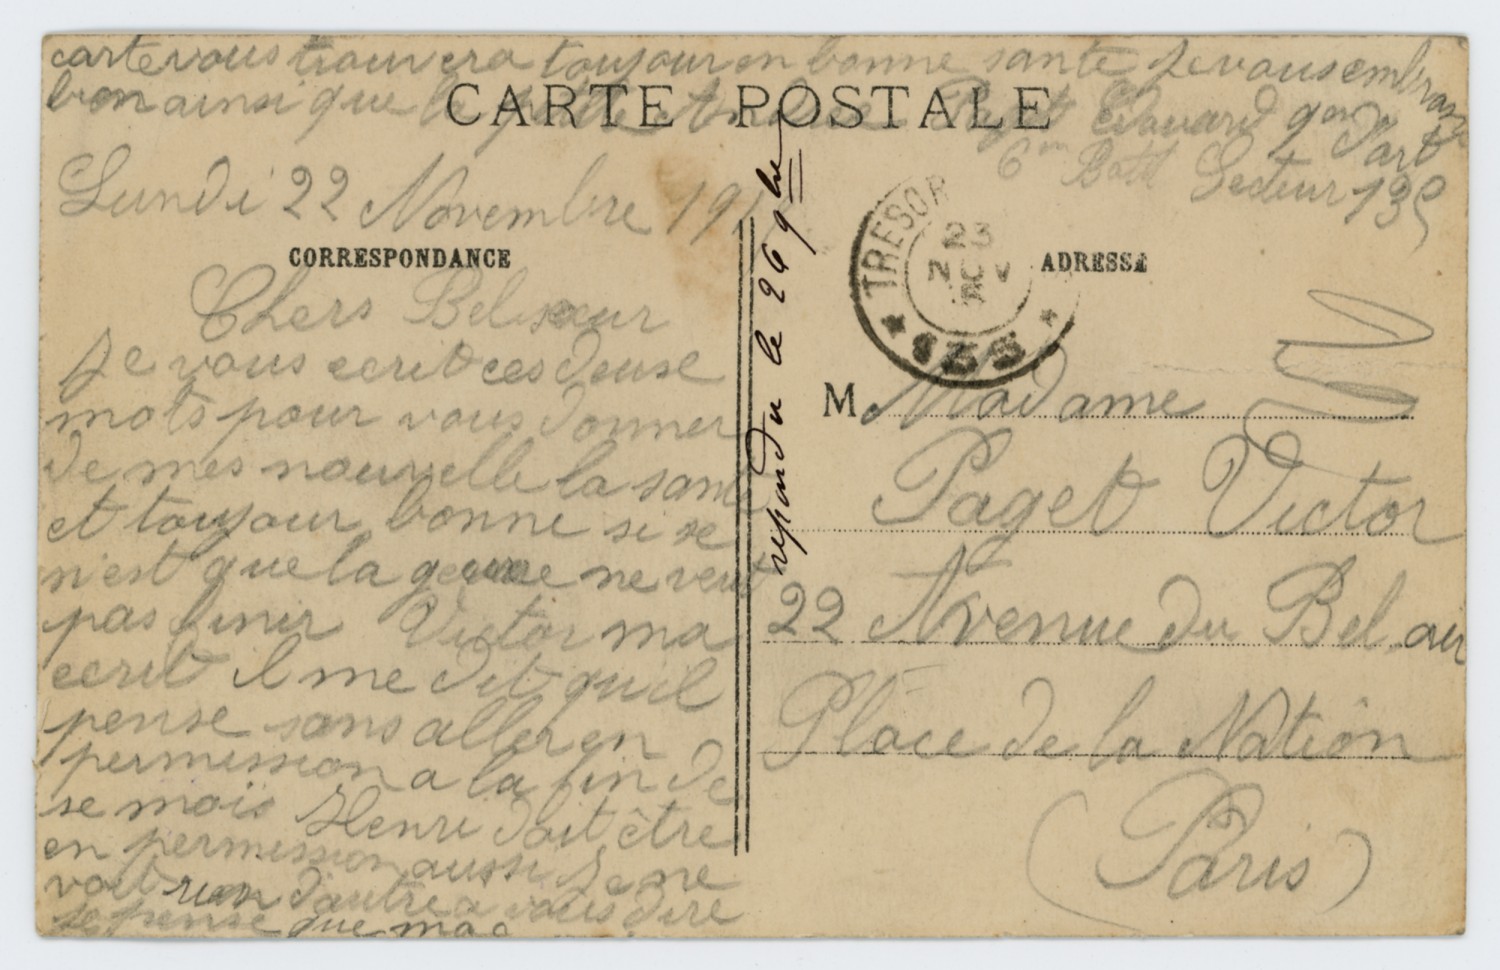 CARTE POSTALE
Lundi 22 Novembre 191
CORRESPONDANCE
Chers Bel sœur
Je vous ecrit ces deuse
mots pour vous donner
de mes nouvelle la santé
et toujour bonne si se
n'est que la guerre ne veut
pas finir Victor ma
ecrit il me dit qu'il
pense sans aller en
permission a la fin de
se mois Henri doit être
en permission aussi Je ne
voit rien d'autre a vous dire
Je pense que ma
carte vous trouvera toujour en bonne santé Je vous embrasse
bien ainsi que la petite Paget Edouard gon d'art
6m Batt Secteur 135
repondu le 26 9bre
TRESOR
23
NOV
135
ADRESSE
M Madame
Paget Victor
22 Avenue du Bel air
Place de la Nation
(Paris)